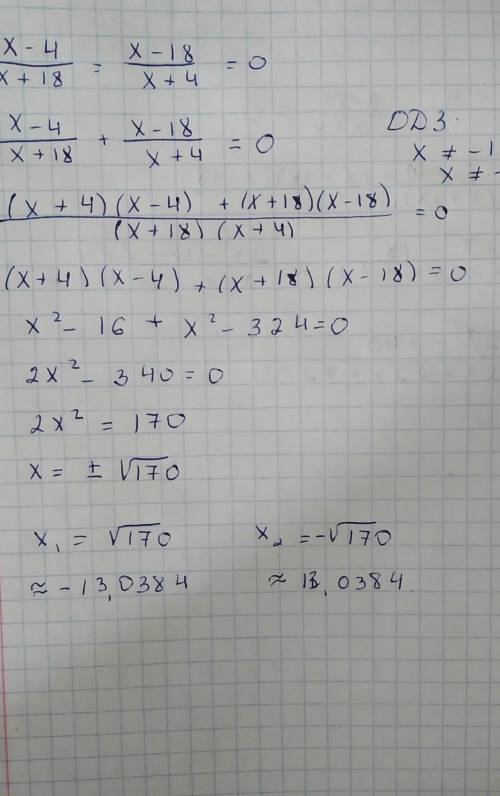 x - 4 / x + 18 = x - 18 / x + 4 = 0
x - 4 / x + 18 + x - 18 / x + 4 = 0
ОДЗ:
x ≠ - 1
x ≠ -
(x + 4)(x - 4) + (x + 18)(x - 18) / (x + 18)(x + 4) = 0
(x + 4)(x - 4) + (x + 18)(x - 18) = 0
x² - 16 + x² - 324 = 0
2x² - 340 = 0
2x² = 170
x = ± √170
x₁ = √170 x₂ = -√170
≈ - 13,0384 ≈ 13,0384